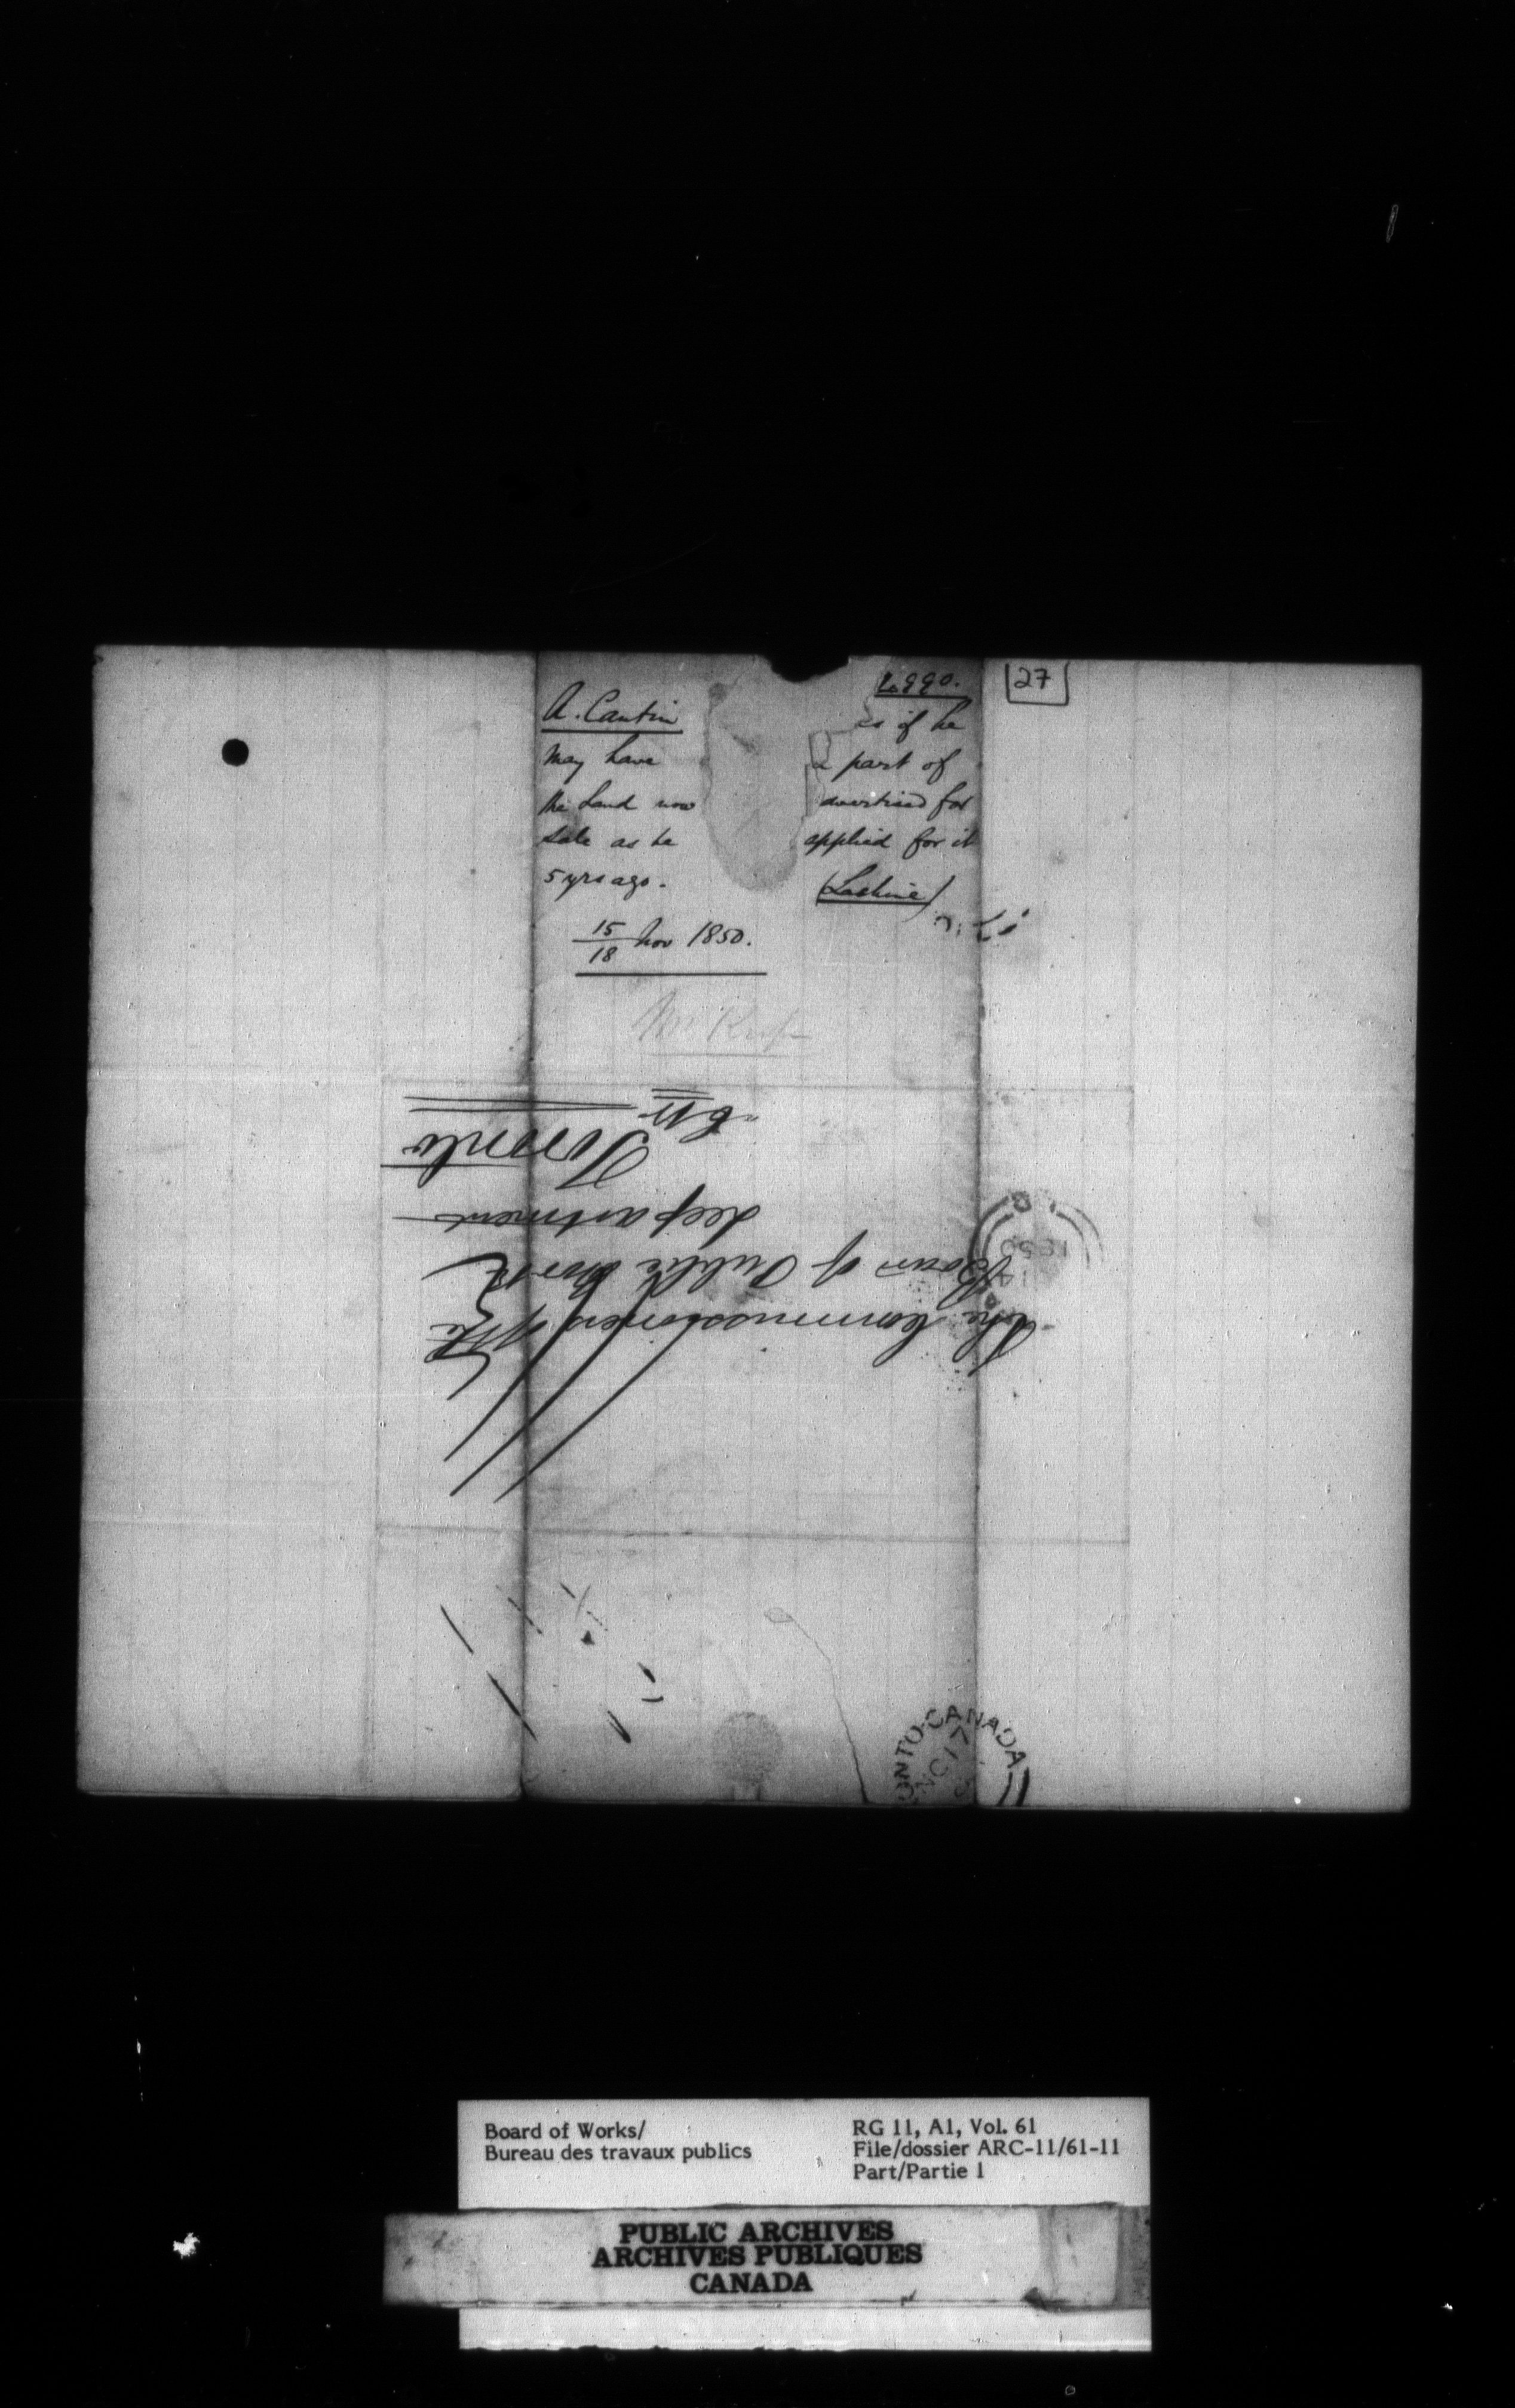 27
A. Cantin
may have
the Land now
sale as he
5 yrs ago.
as if he
a part of
dvertised for
applied for it
(Lachine)
15/18 Nov 1850.
The Commissioners of the
Board of Public Works
department
Toronto
1850
ONTO CANADA
17
Board of Works/
Bureau des travaux publics
RG 11, A1, Vol. 61
File/dossier ARC-11/61-11
Part/Partie 1
PUBLIC ARCHIVES
ARCHIVES PUBLIQUES
CANADA